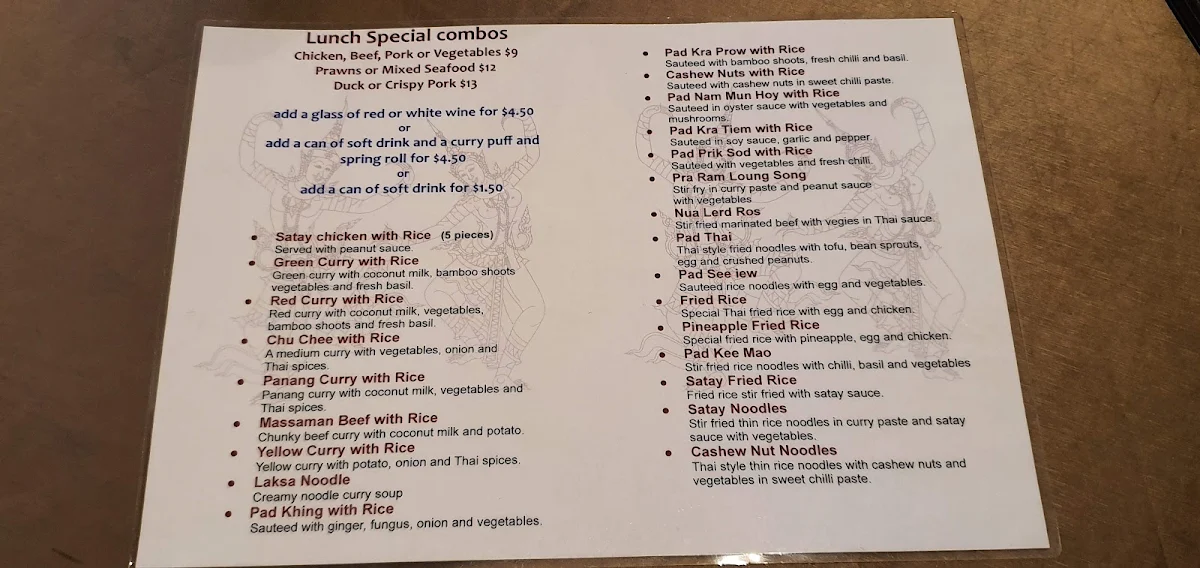 Lunch Special combos
Chicken, Beef, Pork or Vegetables $9
Prawns or Mixed Seafood $12
Duck or Crispy Pork $13
add a glass of red or white wine for $4.50
or
add a can of soft drink and a curry puff and
spring roll for $4.50
or
add a can of soft drink for $1.50
• Satay chicken with Rice (5 pieces)
Served with peanut sauce.
• Green Curry with Rice
Green curry with coconut milk, bamboo shoots
vegetables and fresh basil.
• Red Curry with Rice
Red curry with coconut milk, vegetables,
bamboo shoots and fresh basil.
• Chu Chee with Rice
A medium curry with vegetables, onion and
Thai spices.
• Panang Curry with Rice
Panang curry with coconut milk, vegetables and
Thai spices.
• Massaman Beef with Rice
Chunky beef curry with coconut milk and potato.
• Yellow Curry with Rice
Yellow curry with potato, onion and Thai spices.
• Laksa Noodle
Creamy noodle curry soup
• Pad Khing with Rice
Sauteed with ginger, fungus, onion and vegetables.
• Pad Kra Prow with Rice
Sauteed with bamboo shoots, fresh chilli and basil.
• Cashew Nuts with Rice
Sauteed with cashew nuts in sweet chilli paste.
• Pad Nam Mun Hoy with Rice
Sauteed in oyster sauce with vegetables and
mushrooms.
• Pad Kra Tiem with Rice
Sauteed in soy sauce, garlic and pepper.
• Pad Prik Sod with Rice
Sauteed with vegetables and fresh chilli.
• Pra Ram Loung Song
Stir fry in curry paste and peanut sauce
with vegetables
• Nua Lerd Ros
Stir fried marinated beef with vegies in Thai sauce.
• Pad Thai
Thai style fried noodles with tofu, bean sprouts,
egg and crushed peanuts.
• Pad See iew
Sauteed rice noodles with egg and vegetables.
• Fried Rice
Special Thai fried rice with egg and chicken.
• Pineapple Fried Rice
Special fried rice with pineapple, egg and chicken.
• Pad Kee Mao
Stir fried rice noodles with chilli, basil and vegetables
• Satay Fried Rice
Fried rice stir fried with satay sauce.
• Satay Noodles
Stir fried thin rice noodles in curry paste and satay
sauce with vegetables.
• Cashew Nut Noodles
Thai style thin rice noodles with cashew nuts and
vegetables in sweet chilli paste.